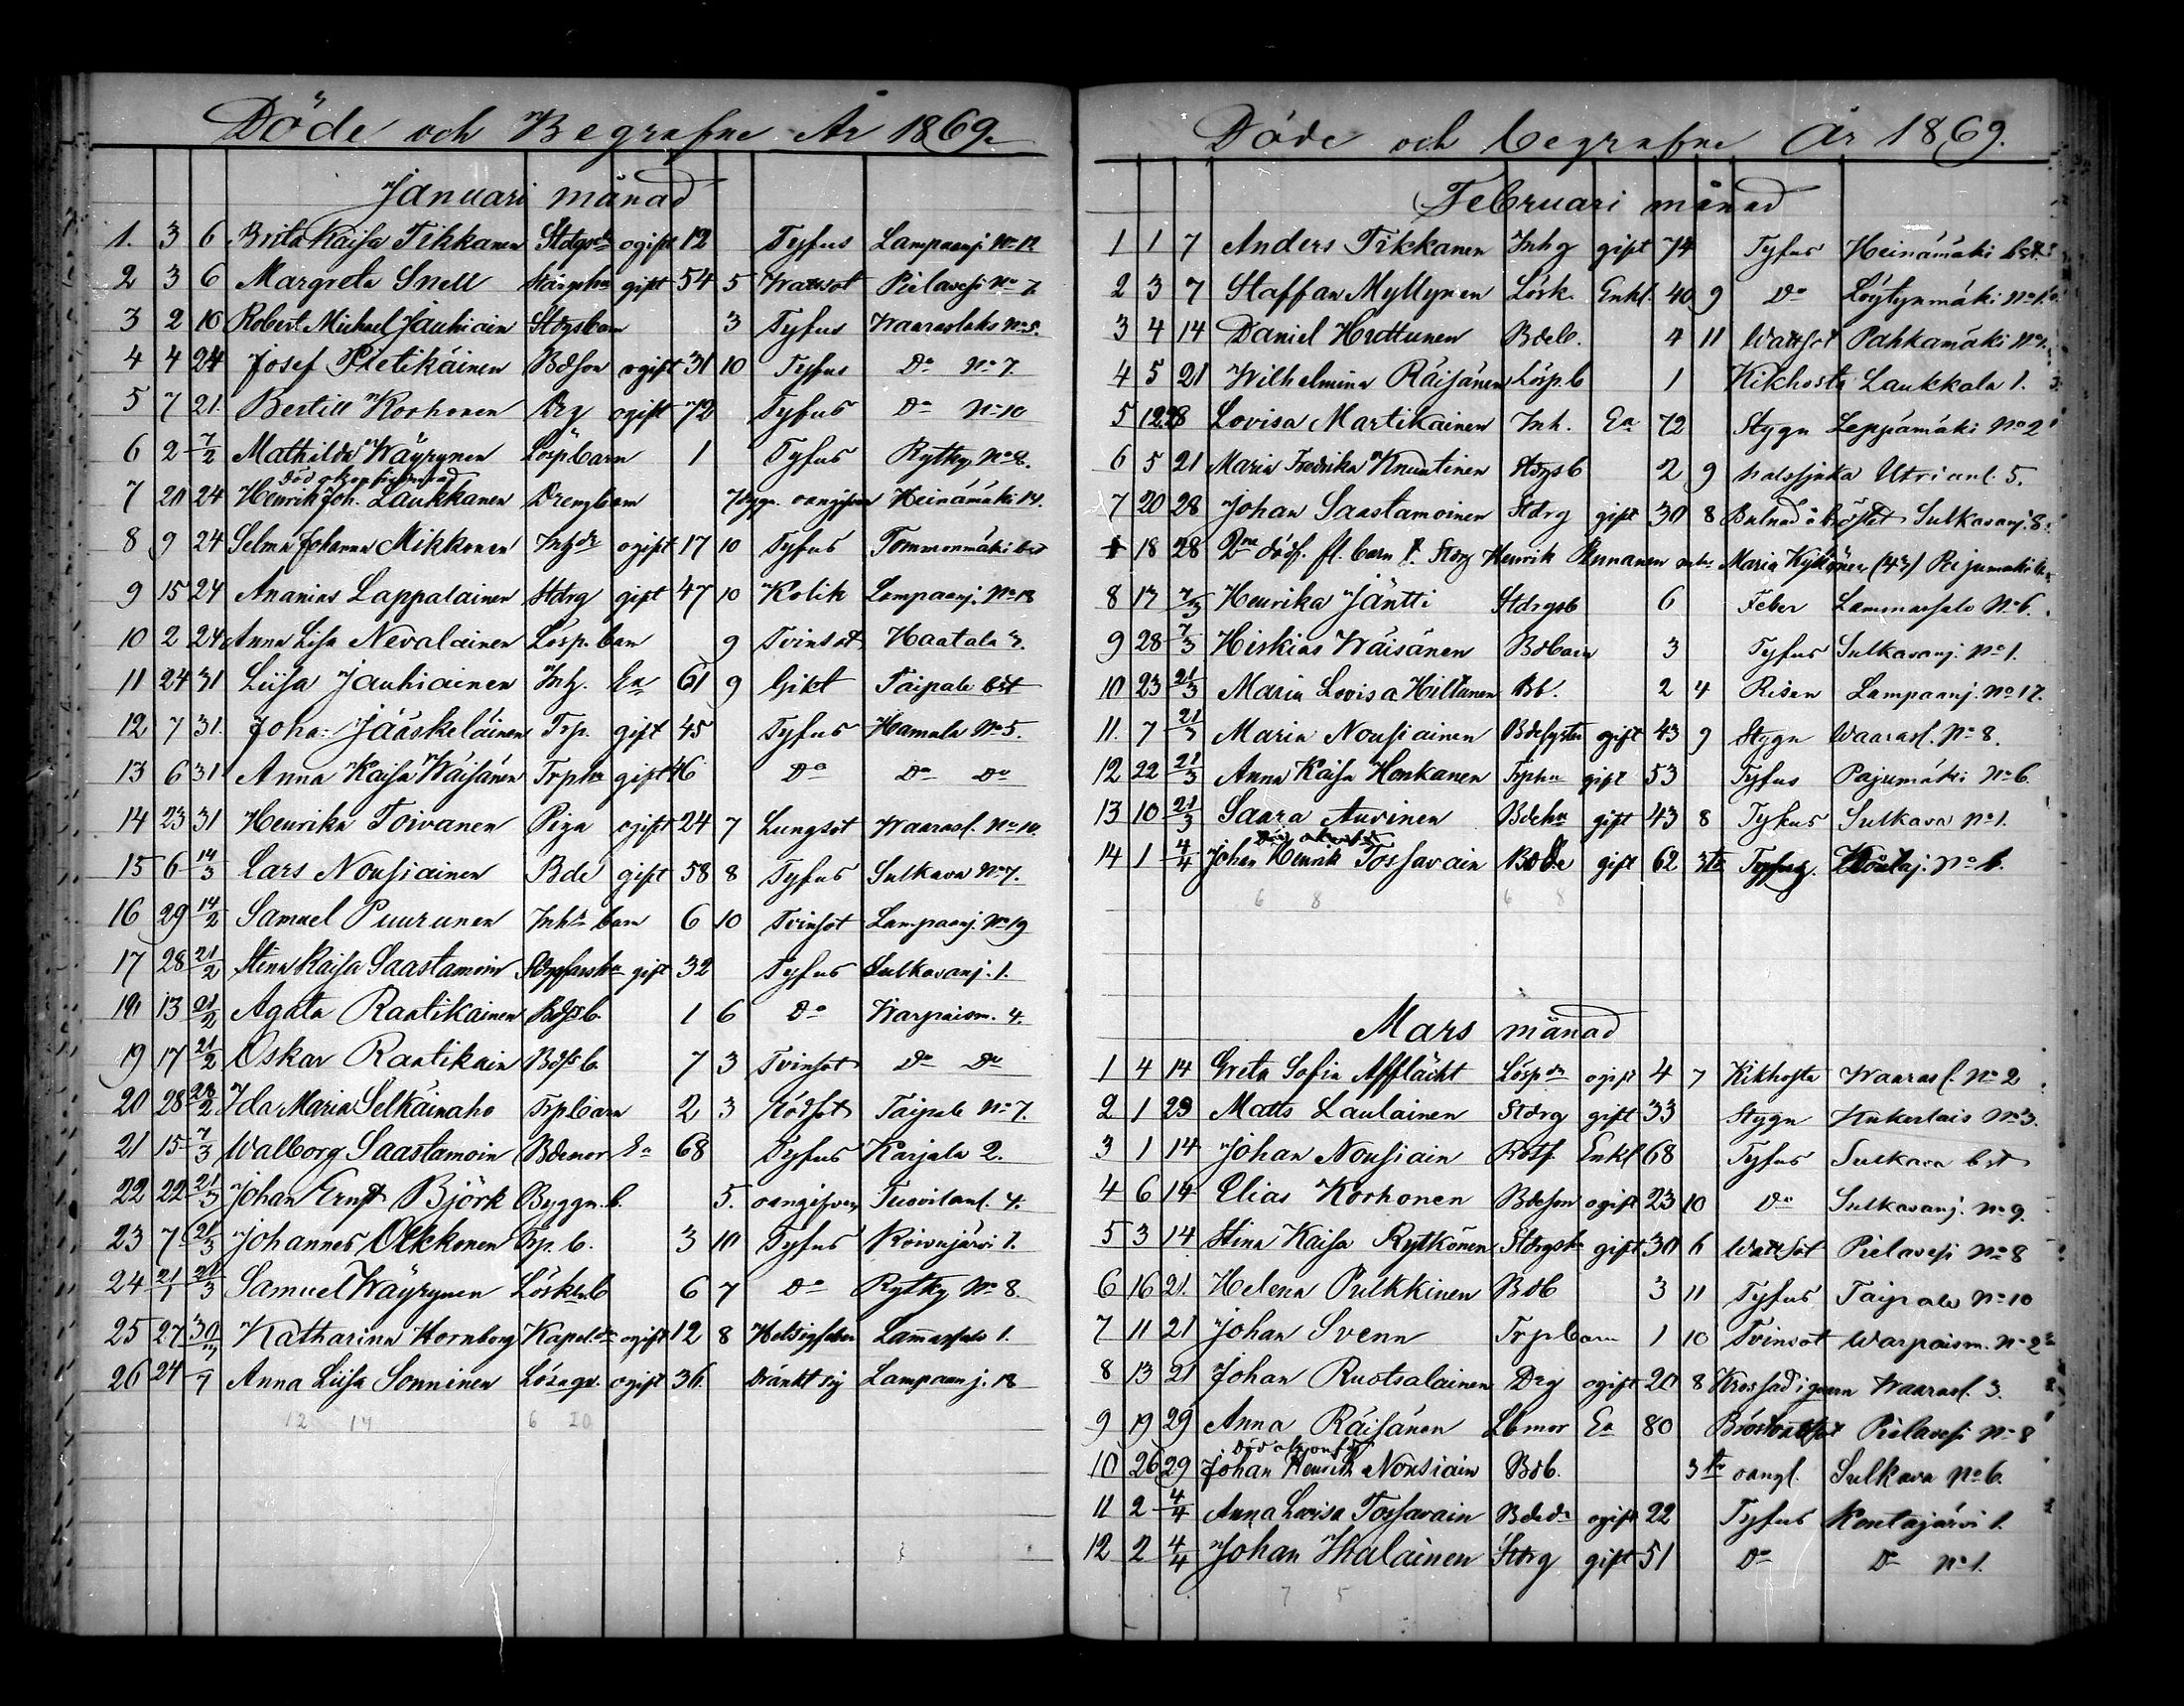 Döde och Begrafne År 1869.
Januari månad
1. 3 6 Brita Kaisa Tikkanen Stdgsdr ogift 12 Tyfus Lampaanj. No 12
2 3 6 Margreta Snell gift 54 5 Wattsot Pielavesi No 7.
3 2 10 Robert Michael Jauhiain Stdgsbarn 3 Tyfus Waaraslaks No 5.
4 4 24 Josef Pietikäinen Bdeson ogift 31 10 Tyfus Do No 7.
5 7 21. Bertill Korhonen Drg ogift 72 Tyfus Do No 10
6 2 7/2 Mathilda Wäyrynen Lösp barn 1 Tyfus Rytky No 8.
Död
7 20 24 Henrik Joh. Laukkanen Drengbarn oangifven Heinämäki 14.
8 9 24 Selma Johanna Mikkonen Inhdr ogift 17 10 Tyfus Tommonmäki bst
9 15 24 Ananias Lappalainen Stdrg gift 47 10 Kolik Lampaanj. No 18
10 2 24 Anna Lisa Nevalainen Lösp. barn 9 Tvinsot Haatala 3.
11 24 31 Liisa Jauhiainen Inh. Ea 61 9 Gikt Taipale bst
12 7 31. Joha: Jääskeläinen Trp. gift 45 Tyfus Hamula No 5.
13 6 31 Anna Kaisa Wäisänen Trphu gift 46 Do Do Do
14 23 31 Henrika Toivanen Piga ogift 24 7 Lungsot Waarasl. No 10.
15 6 14/3 Lars Nousiainen Bde gift 58 8 Tyfus Sulkava No 7.
16 29 14/2 Samuel Puurunen Inhrs barn 6 10 Tvinsot Lampaanj. No 19
17 28 21/2 Stina Kaisa Saastamoin gift 32 Tyfus Sulkavanj. 1.
18 13 21/2 Agata Raatikainen Bdesb. 1 6 Do Warpaism. 4.
19 17 21/2 Oskar Raatikain Bdesb. 7 3 Tvinsot Do Do
20 28 28/2 Ida Maria Selkäinaho Trpbarn 2 3 Rödsot Taipale No 7.
21 15 7/3 Walborg Saastamoin Bdemor Ea 68 Tyfus Karjala 2.
22 22 21/3 Johan Ernst Björk Byggm. b. 5. oangifven Tuovilanl. 4.
23 7 21/3 Johannes Okkonen Trp. b. 3 10 Tyfus Koivujärvi 7.
24 21/1 21/3 Samuel Wäyrynen Löskb. 6 7 Do Rytky No 8.
25 27 Katharina Hornborg Kapel.dr ogift 12 8 Lammassalo 1.
26 24 Anna Liisa Sonninen ogift 36. Dränkt sig Lampaanj. 18
12 14 6 20
Döde och begrafne År 1869.
Februari månad
1 1 7 Anders Tikkanen Inhg gift 74 Tyfus Heinämäki bst.
2 3 7 Staffan Myllynen Lösk. Enkl. 40 9 Do Löytynmäki No 1.
3 4 14 Daniel Huttunen Bdeb. 4 11 Wattsot Pahkamäki No 1.
4 5 21 Wilhelmina Räisänen Lösp.b 1 Kikhosta Laukkala 1.
5 12 28 Lovisa Martikainen Inh. Ea 72 Stygn Leppämäki No 2
6 5 21 Maria Fredrika Knuutinen Stdrgsb 2 9 Halssjuka Utrianl. 5.
7 20 28 Johan Saastamoinen Stdrg gift 30 8 Bulnad i bröstet Sulkavanj. 8.
18 28 2ne dödf. fl. barn f. Stdrg Henrik Pennanen Maria Kykönen (43) Pajumäki
8 13 7/3 Henrika Jäntti Stdrgsb 6 Feber Lammassalo No 6.
9 28 7/3 Hiskias Wäisänen Bdbarn 3 Tyfus Sulkavanj. No 1.
10 23 21/3 Maria Lovisa Hiltunen Bb. 2 4 Risen Lampaanj. No 17.
11. 7 21/3 Maria Nousiainen Bdesyster ogift 43 9 Stygn Waarasl. No 8.
12 22 21/3 Anna Kaisa Honkanen Trphu gift 53 Tyfus Pajumäki No 6.
13 10 21/3 Saara Auvinen Bdehu gift 43 8 Tyfus Sulkava No 1.
14 1 4/4 Johan Henrik Tossavain Bde gift 62 No 6.
6 8 6 8
Mars månad
1 4 14 Greta Sofia Afflächt Löspdr ogift 4 7 Kikhosta Waarasl. No 2
2 1 29 Matts Laulainen Stdrg gift 33 Stygn No 3.
3 1 14 Johan Nousiain Rotf. Enkl 68 Tyfus Sulkava bst
4 6 14 Elias Korhonen Bdeson ogift 23 10 Do Sulkavanj. No 9.
5 3 14 Stina Kaisa Rytkönen gift 30 6 Wattsot Pielavesi No 8
6 16 21. Helena Pulkkinen Bdb 3 11 Tyfus Taipale No 10
7 11 21 Johan Svenn Trpbarn 1 10 Tvinsot Warpaism. No 2
8 13 21 Johan Ruotsalainen Drg ogift 20 8 Waarasl. 3.
9 19 29 Anna Räisänen Lbmor Ea 80 Bröstvattsot Pielavesi No 8
10 26 29 Johan Henrik Nousiain Bdb. 3 oangf. Sulkava No 6.
11 2 4/4 Anna Lovisa Tossavain Bdedr ogift 22 Tyfus Koutajärvi 1.
12 2 4/4 Johan Halainen Stdrg gift 51 Do Do No 1.
7 5